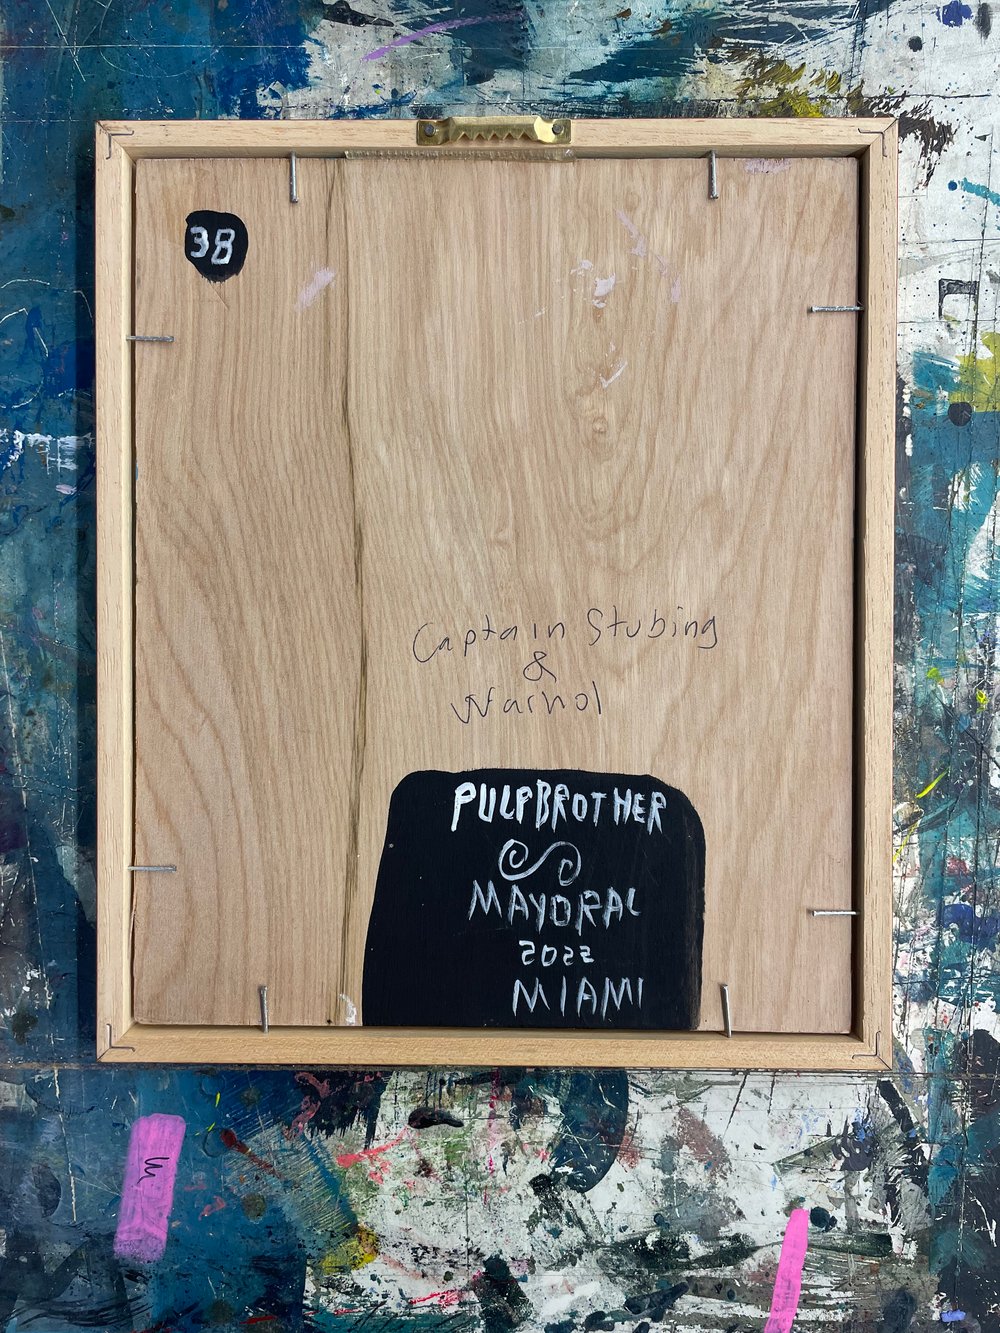 38
Captain Stubing
&
Warhol
PULPBROTHER
MAYORAL
2022
MIAMI